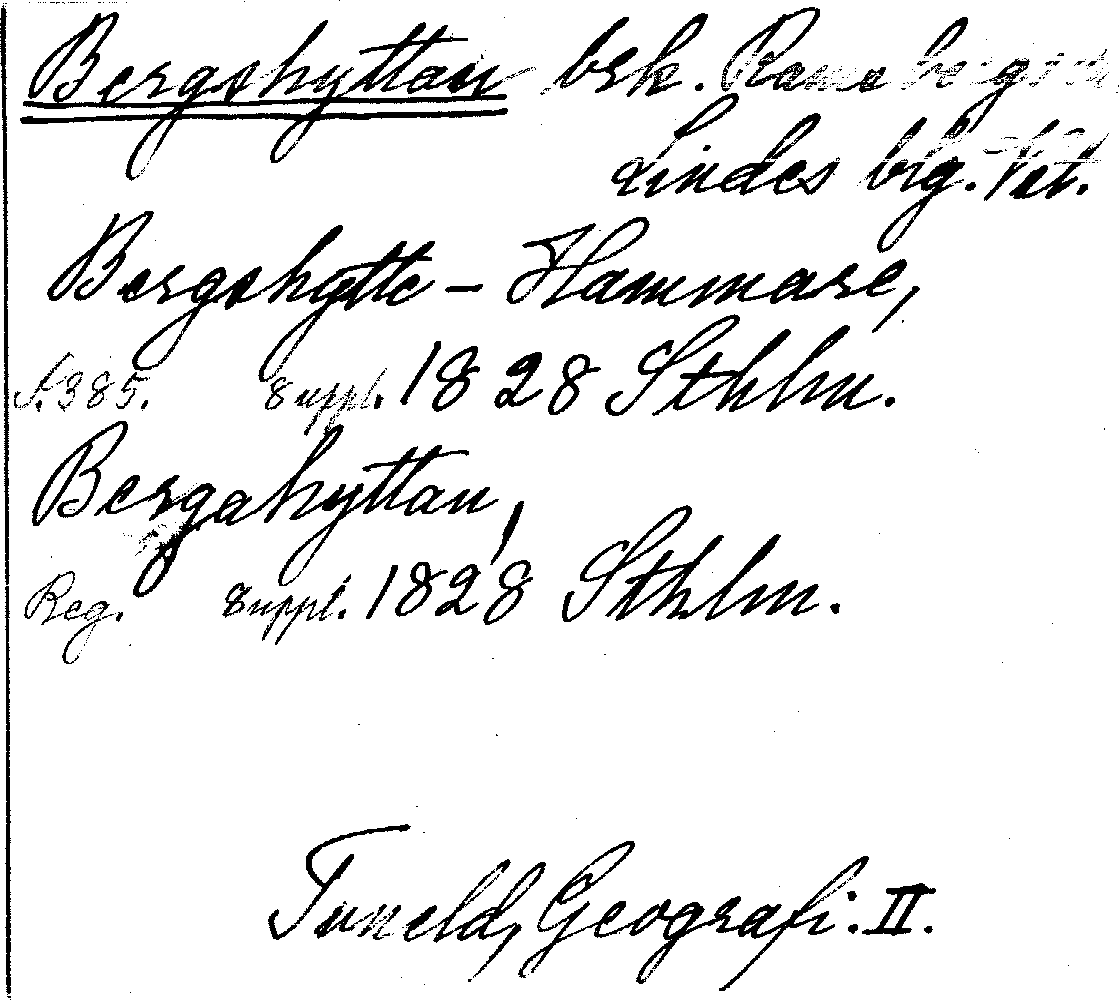 Bergshyttan brk. Ramsbergs sn.
Lindes brg. Vst.
Bergshytte-Hammare,
S. 385. Suppl. 1828 Sthlm.
Bergahyttan,
Reg. Suppl. 1828 Sthlm.
Tuneld, Geografi. II.